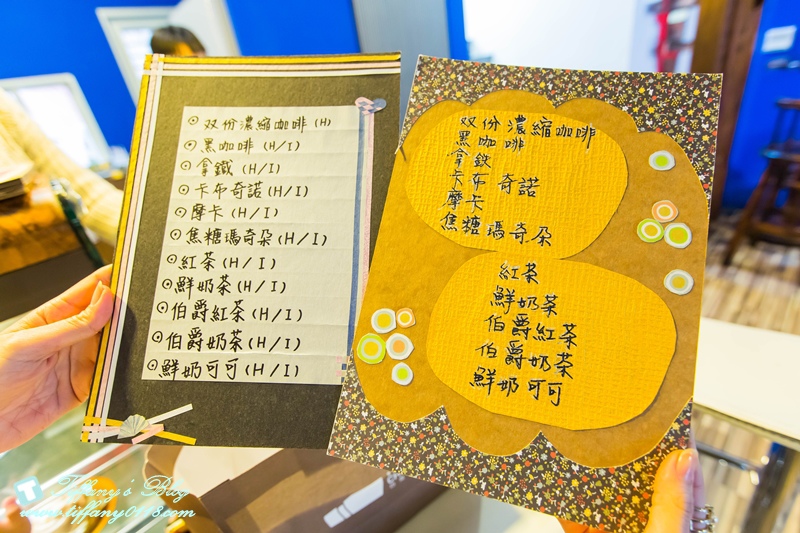 ⊙双份濃縮咖啡(H)
⊙黑咖啡(H/I)
⊙拿鐵(H/I)
⊙卡布奇諾(H/I)
⊙摩卡(H/I)
⊙焦糖瑪奇朵(H/I)
⊙紅茶(H/I)
⊙鮮奶茶(H/I)
⊙伯爵紅茶(H/I)
⊙伯爵奶茶(H/I)
⊙鮮奶可可(H/I)
双份濃縮咖啡
黑咖啡
拿鉄
卡布奇諾
摩卡
焦糖瑪奇朵
紅茶
鮮奶茶
伯爵紅茶
伯爵奶茶
鮮奶可可
T Tiffany's Bag
www.tiffany0118.com